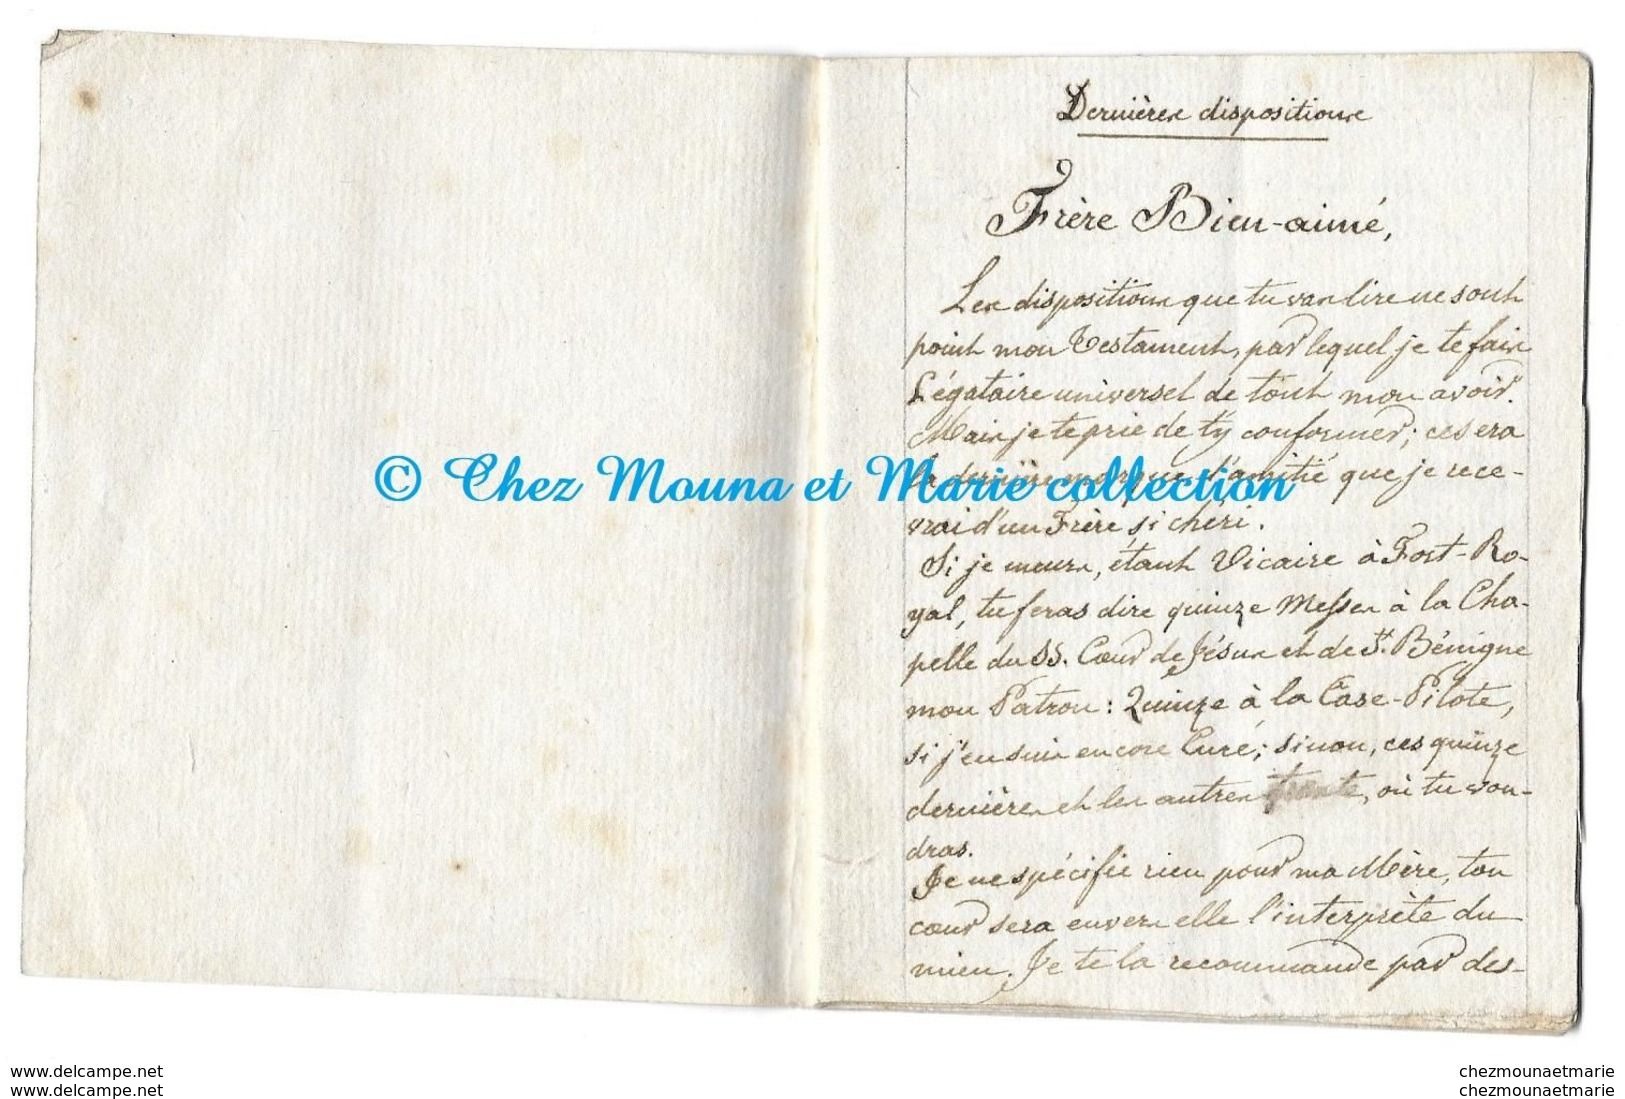 Dernières dispositions
Frère Bien-aimé,
Les dispositions que tu vas lire ne sont
point mon Testament, par lequel je te fais
Légataire universel de tout mon avoir.
Mais je te prie de t'y conformer; ce sera
la dernière marque d'amitié que je rece-
vrai d'un Frère si chéri.
Si je meurs, étant Vicaire à Fort-Ro-
yal, tu feras dire quinze Messes à la Cha-
pelle du SS. Cœur de Jésus et de St. Bénigne
mon Patron: Quinze à la Case-Pilote,
si j'en suis encore Curé; sinon, ces quinze
dernières et les autres trente, où tu vou-
dras.
Je ne spécifie rien pour ma Mère, ton
cœur sera envers elle l'interprète du
mien. Je te la recommande par des-
© Chez Mouna et Marie collection
www.delcampe.net
www.delcampe.net
chezmounaetmarie
chezmounaetmarie